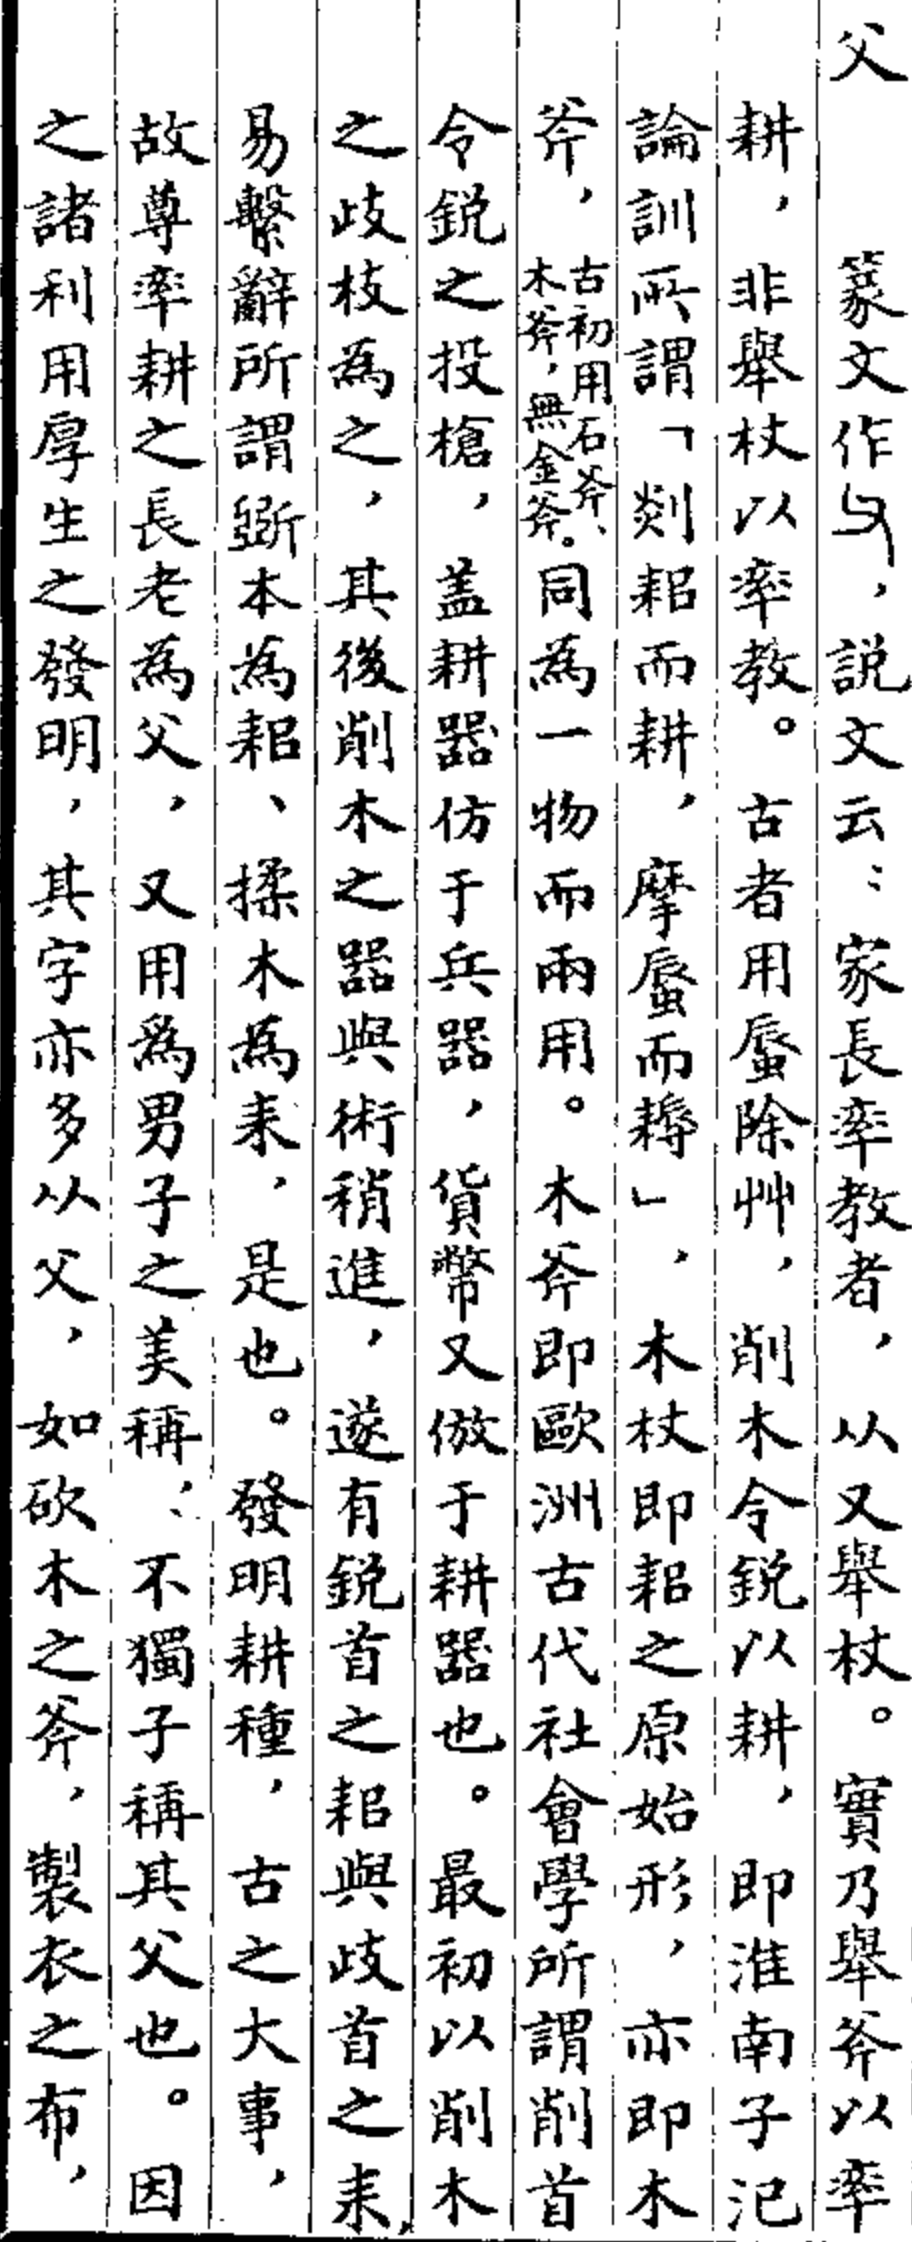 父　篆文作，説文云：家長率教者，从又舉杖。實乃舉斧以率
耕，非舉杖以率教。古者用蜃除艸，削木令鋭以耕，即淮南子氾
論訓所謂「剡耜而耕，摩蜃而耨」，木杖即耜之原始形，亦即木
斧，古初用石斧、木斧，無金斧。同為一物而兩用。木斧即歐洲古代社會學所謂削首
令鋭之投槍，盖耕器仿于兵器，貨幣又倣于耕器也。最初以削木
之歧枝為之，其後削木之器與術稍進，遂有鋭首之耜與歧首之耒，
易繫辭所謂斲本為耜、揉木為耒，是也。發明耕種，古之大事，
故尊率耕之長老為父，又用為男子之美稱、不獨子稱其父也。因
之諸利用厚生之發明，其字亦多从父，如砍木之斧，製衣之布，